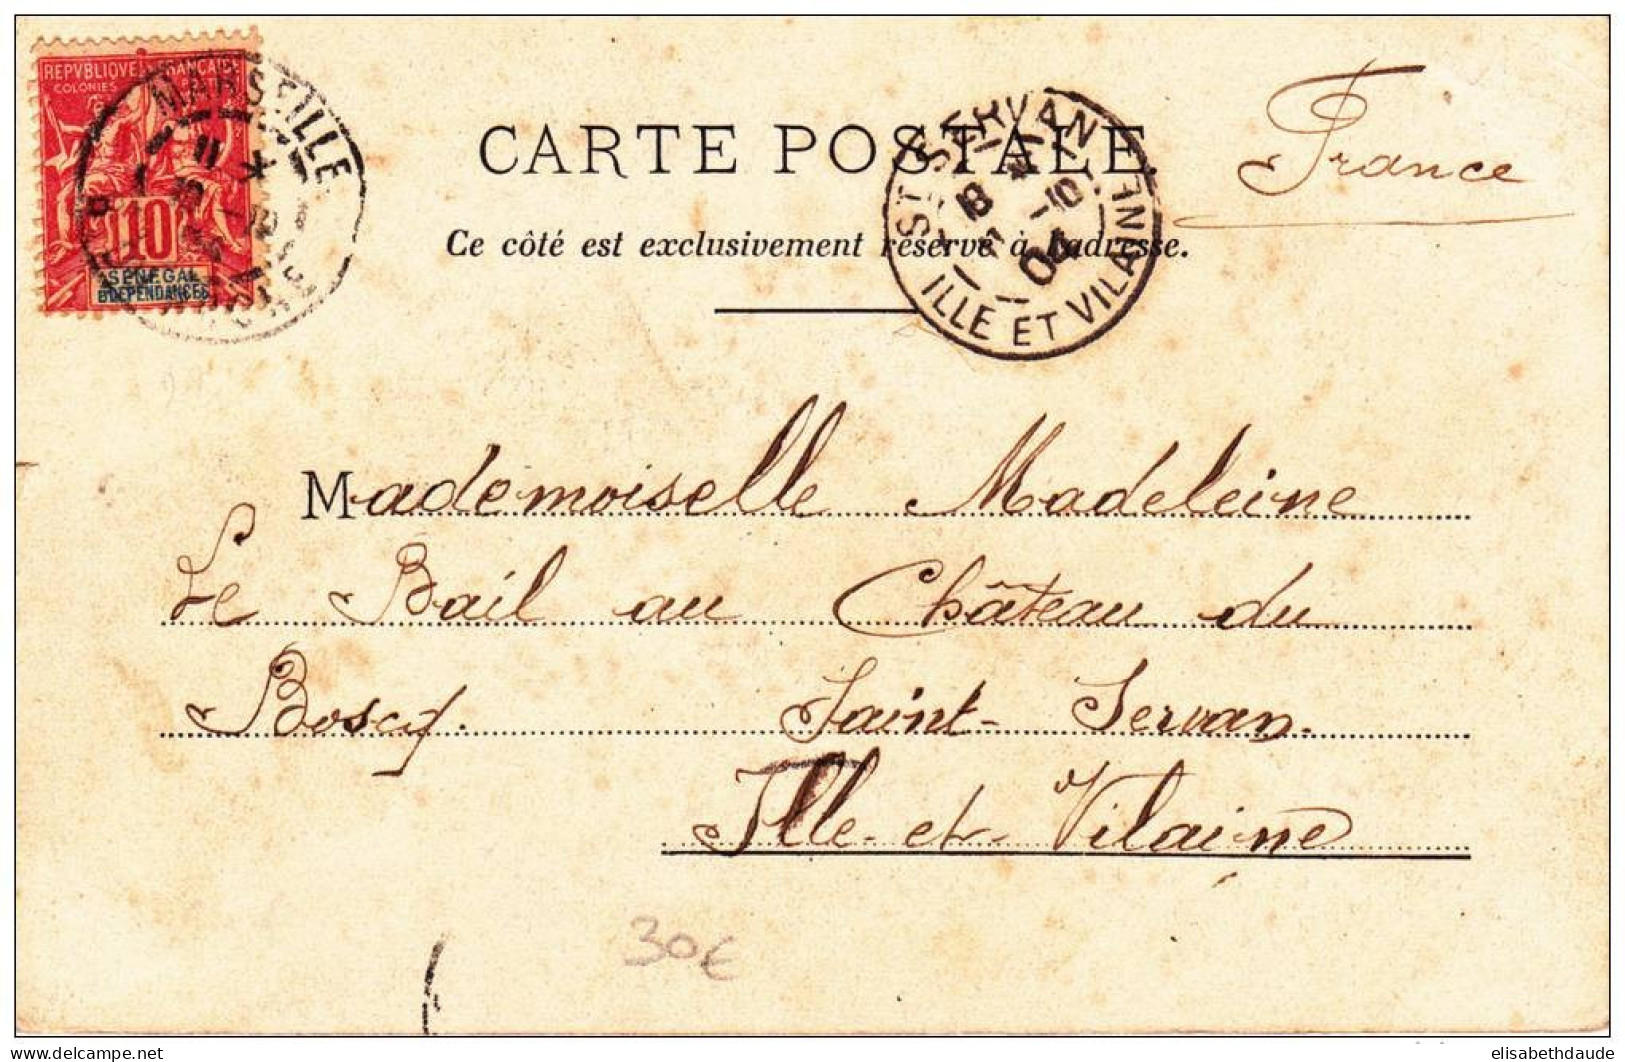 REPVBLIQVE FRANÇAISE
COLONIES
10
SÉNÉGAL
& DÉPENDANCES
MARSEILLE
CARTE POSTALE.
France
ST SERVAN
18
-10
04
ILLE ET VILAINE
Ce côté est exclusivement réservé à l'adresse.
Mademoiselle Madeleine
Le Bail au Château du
Boscq. Saint-Servan.
Ille-et-Vilaine
30€
www.delcampe.net
elisabethdaude